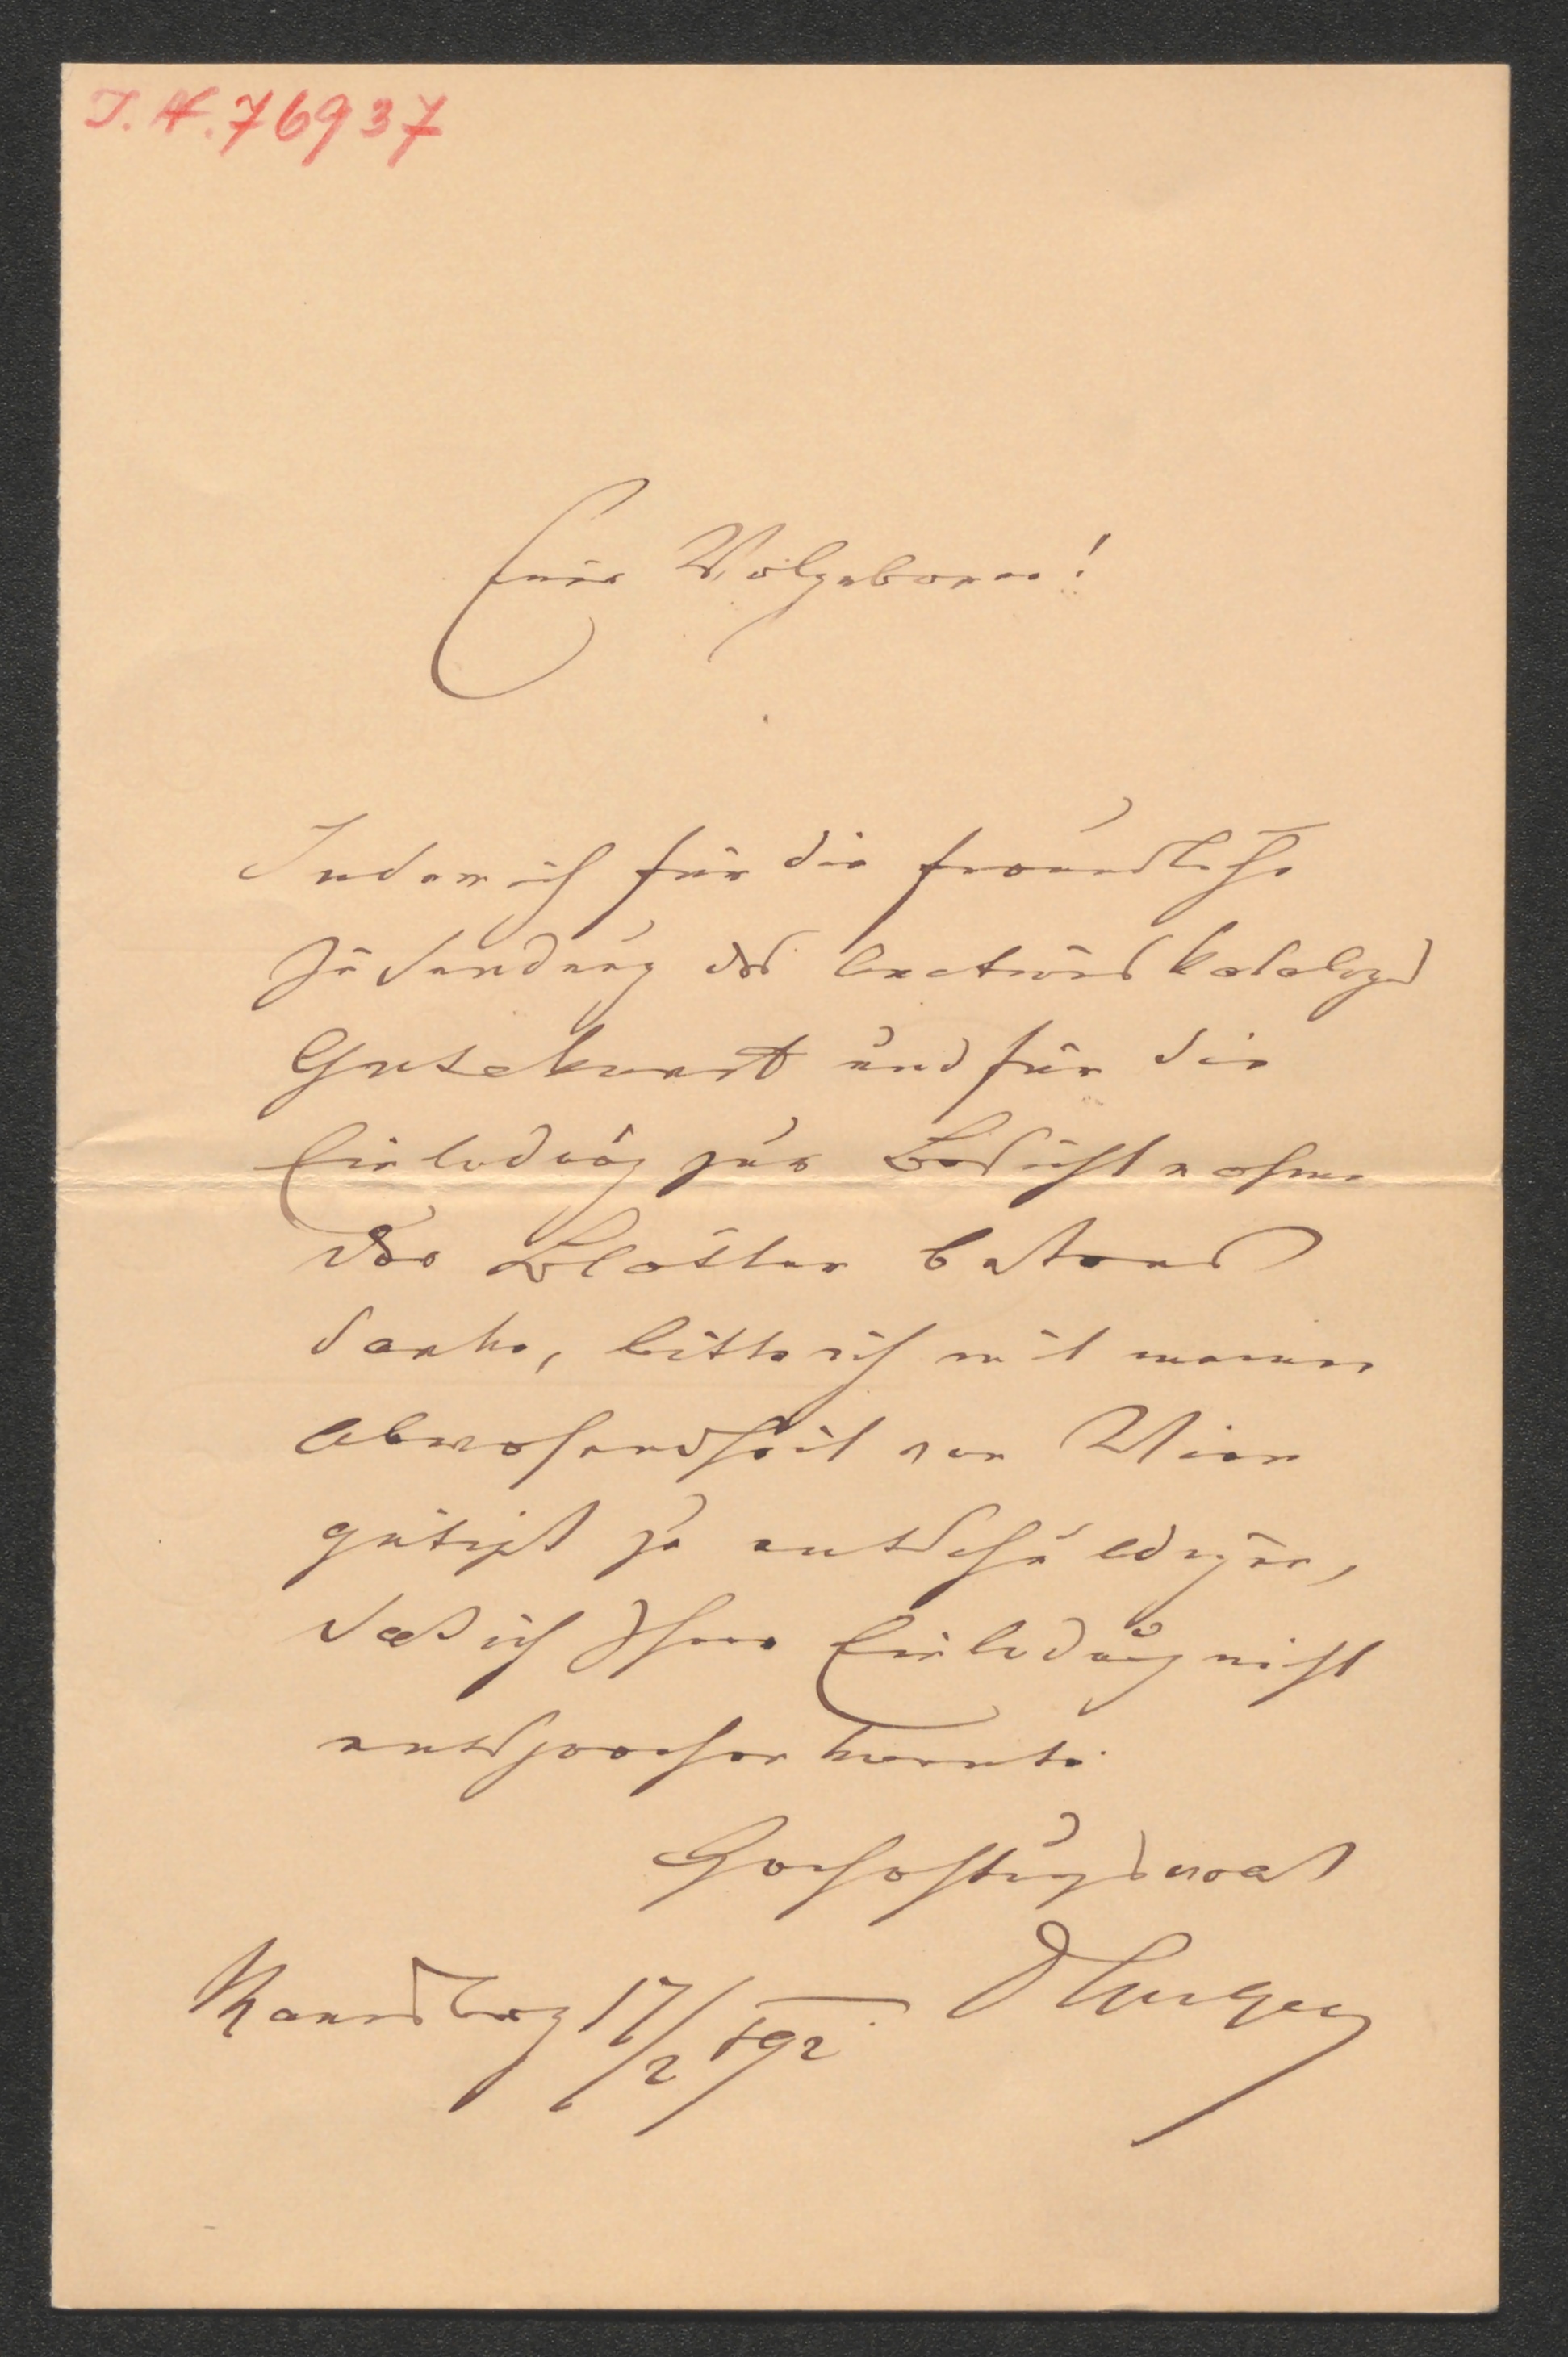 I. N. 76937
Euer Wolgeboren!
Indem ich für die freundliche
Zusendung des Auctionskataloges
Gutekunst und für die
Einladung zur Besichtnahme
der Blätter bestens
danke, bitte ich mit meiner
Abwesenheit von Wien
gütigst zu entschuldigen,
daß ich Ihrer Einladung nicht
entsprechen konnte.
Hochachtungsvoll
17/2 892